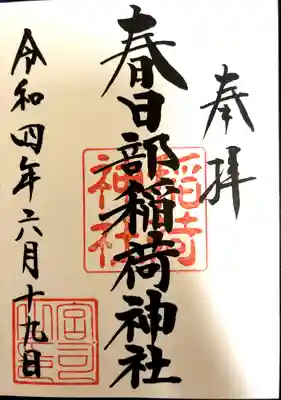 奉拝
春日部稲荷神社
令和四年六月十九日